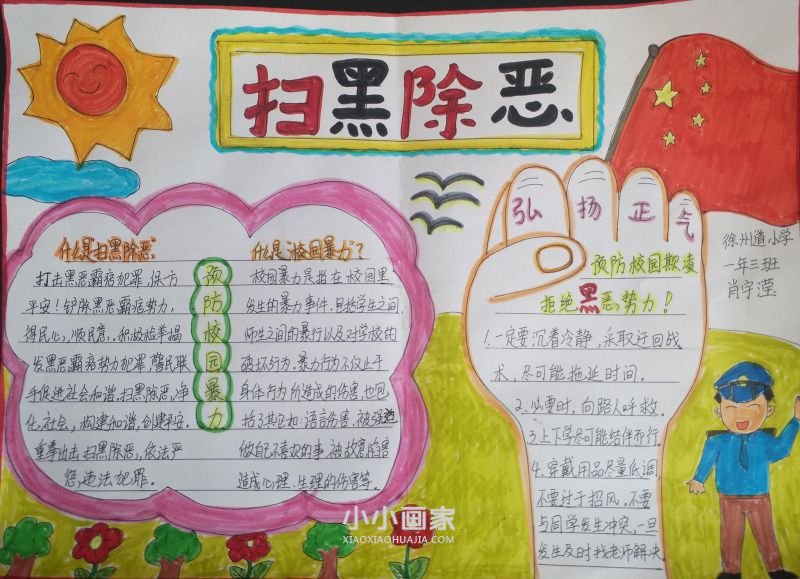 扫黑除恶
弘扬正气
徐州道小学
一年三班
肖宇滢
什么是扫黑除恶
打击黑恶霸痞犯罪,保一方
平安!铲除黑恶霸痞势力,
得民心,顺民意,积极检举揭
发黑恶霸痞势力犯罪,警民联
手促进社会和谐,扫黑除恶,净
化社会,构建和谐,创建平安.
重拳出击扫黑除恶,依法严
惩,违法犯罪.
预防校园暴力
什么是“校园暴力”?
校园暴力是指在校园里
发生的暴力事件,包括学生之间
师生之间的暴行以及对学校的
破坏行为.暴力行为不仅止于
身体行为所造成的伤害,也包
括了其它如:语言伤害.被强迫
做自己不喜欢的事.被故意陷害
造成心理、生理的伤害等.
预防校园欺凌
拒绝黑恶势力!
1.一定要沉着冷静,采取迂回战
术,尽可能拖延时间.
2、必要时,向路人呼救.
3.上下学尽可能结伴而行.
4.穿戴用品尽量低调,
不要过于招风,不要
与同学发生冲突,一旦
发生及时找老师解决
小小画家
XIAOXIAOHUAJIA.COM